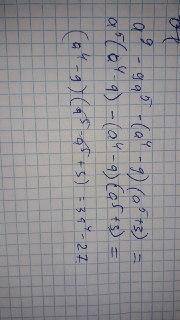 a⁹ - 9a⁵ - (a⁴ - 9)(a⁵+3) =
a⁵(a⁴-9) - (a⁴-9)(a⁵+3) =
(a⁴-9)(a⁵-a⁵+3) = 3a⁴-27